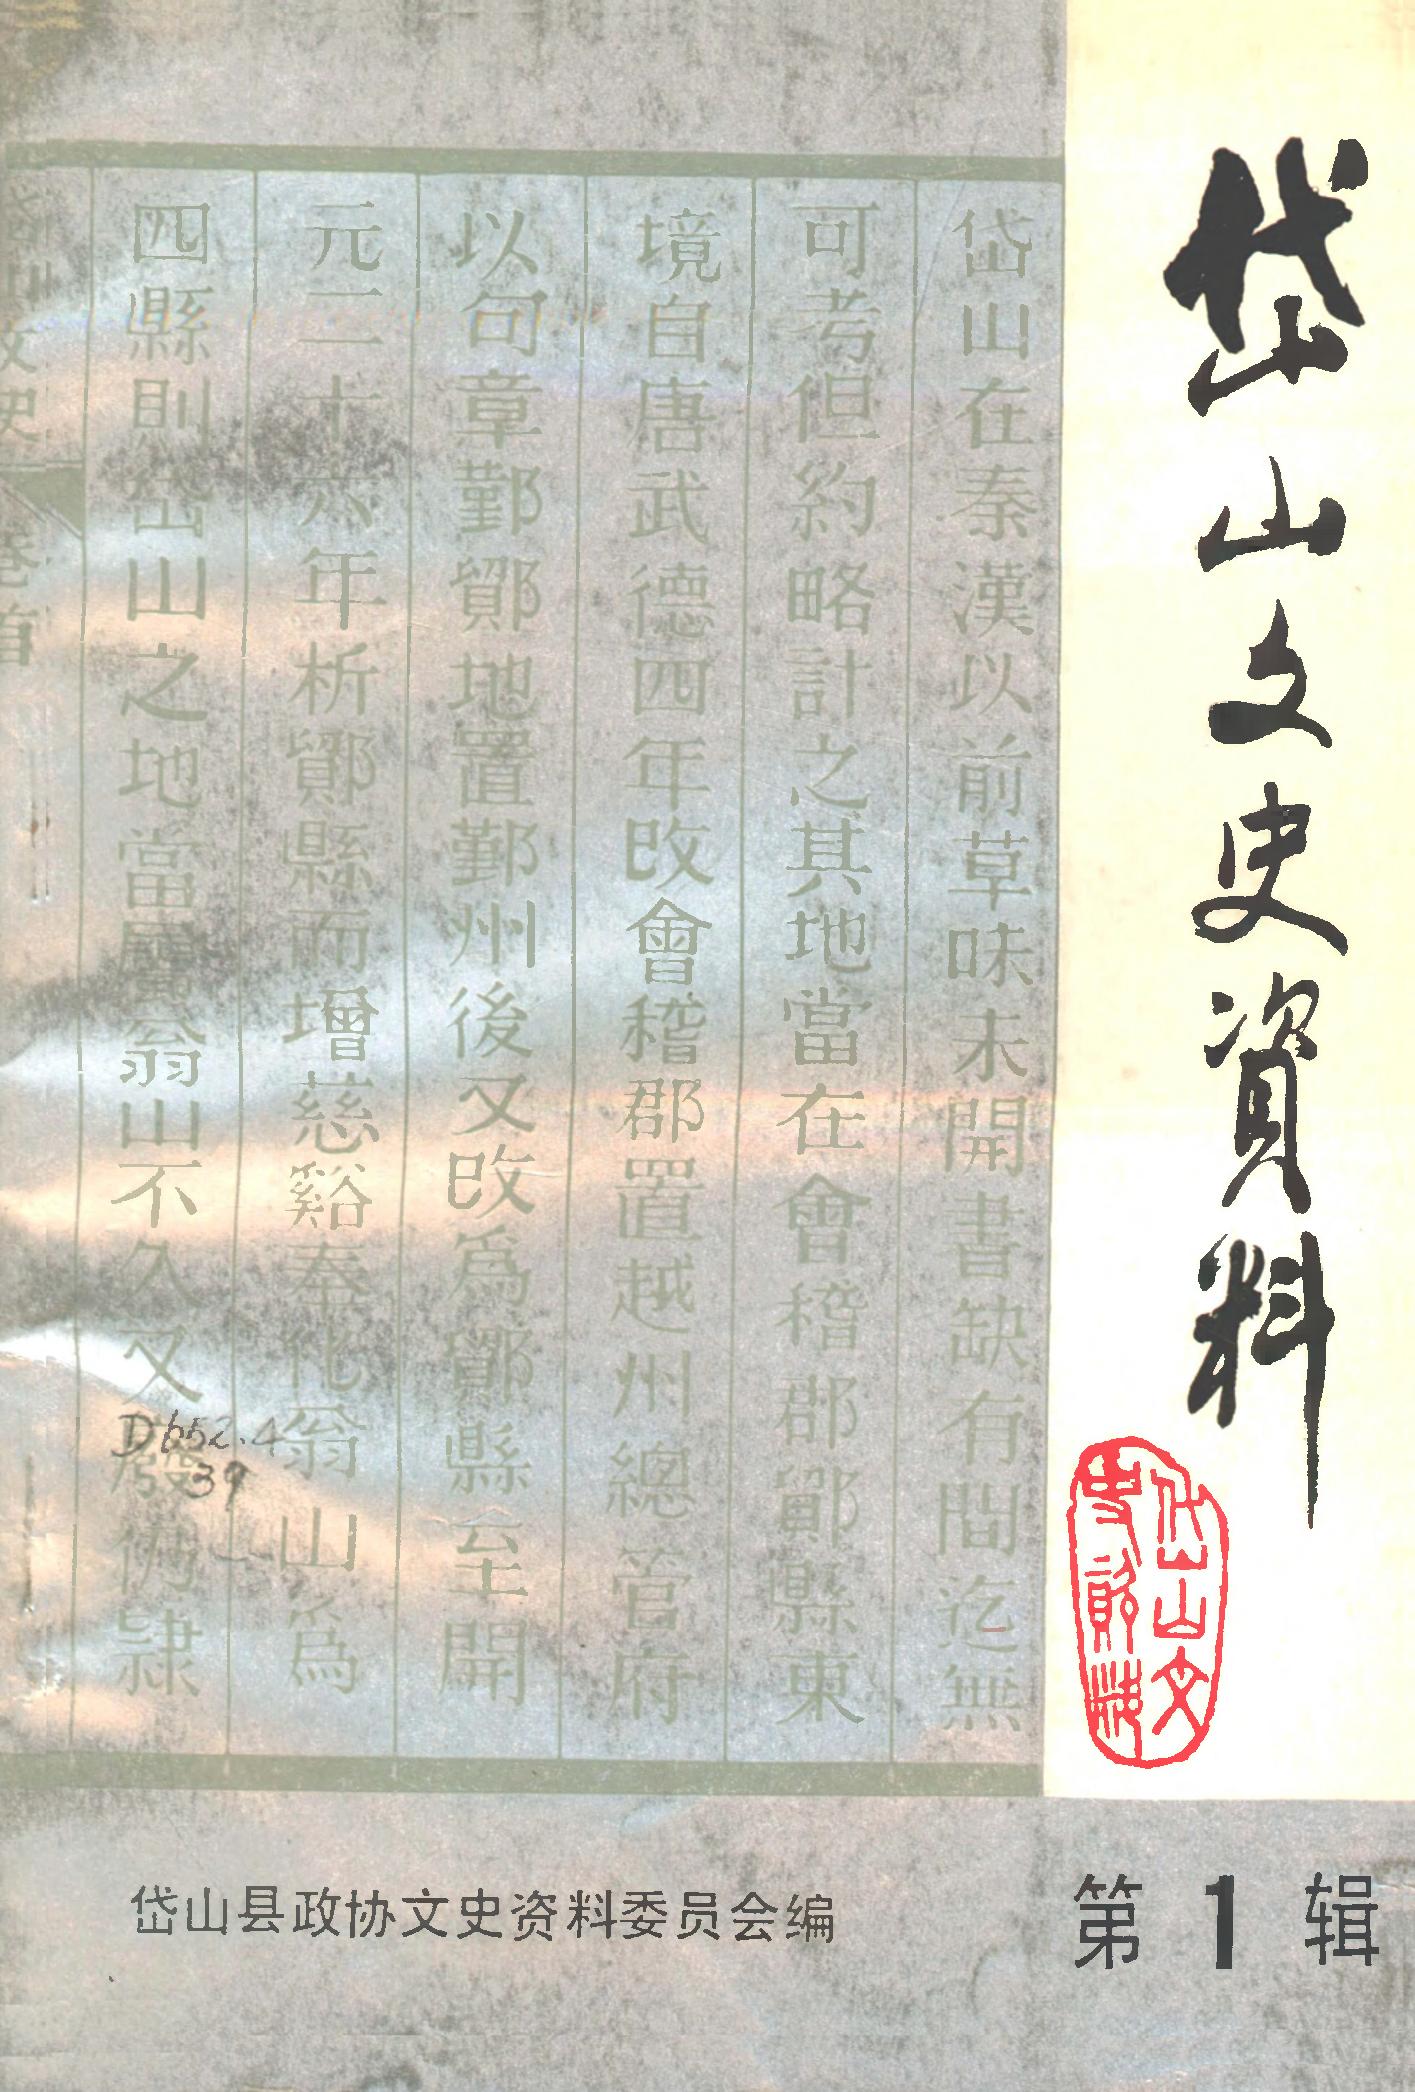 岱山文史資料
岱山文
史資料
第1辑
岱山县政协文史资料委员会编
岱山在秦漢以前草味未開書缺有間迄無
可考但約略計之其地當在會稽郡鄮縣東
境自唐武德四年改會稽郡置越州總管府
以句章鄞鄮地置鄞州後又改為鄮縣至開
元二十六年析鄮縣而增慈谿奉化翁山為
四縣則岱山之地當屬翁山不久又廢仍隸
岱山文史
卷首
D652.4
39